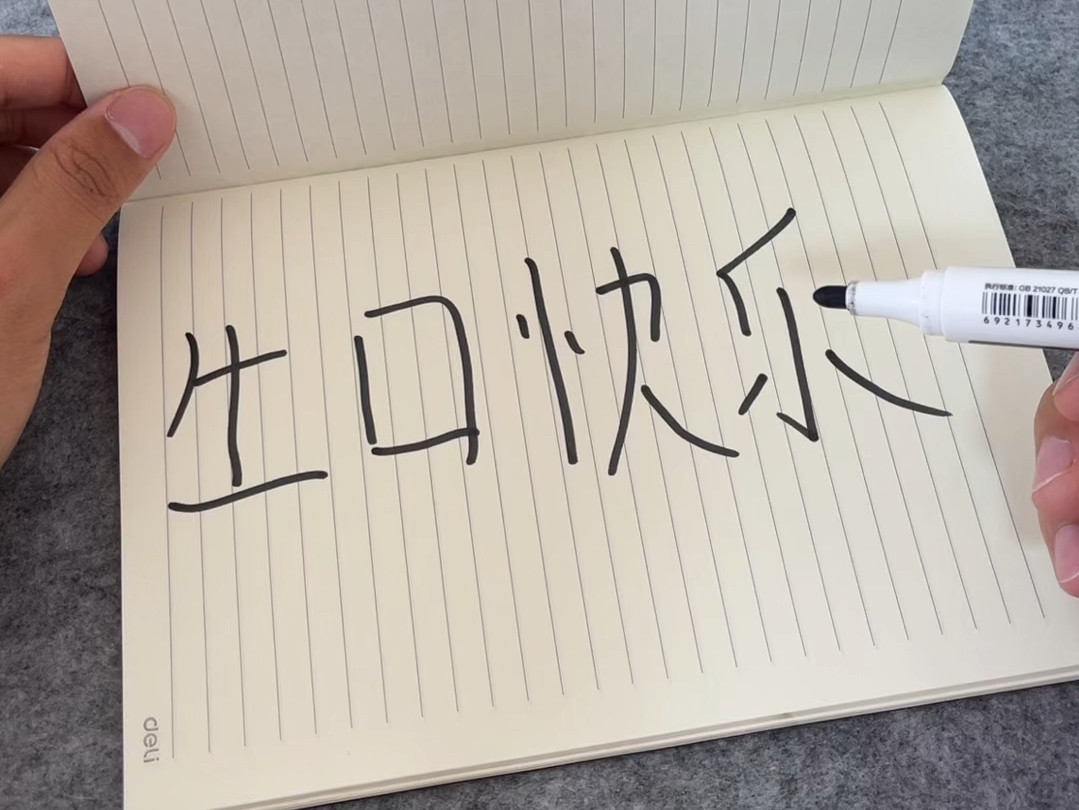 生口快乐
执行标准: GB 21027 QB/T
692173496
deli